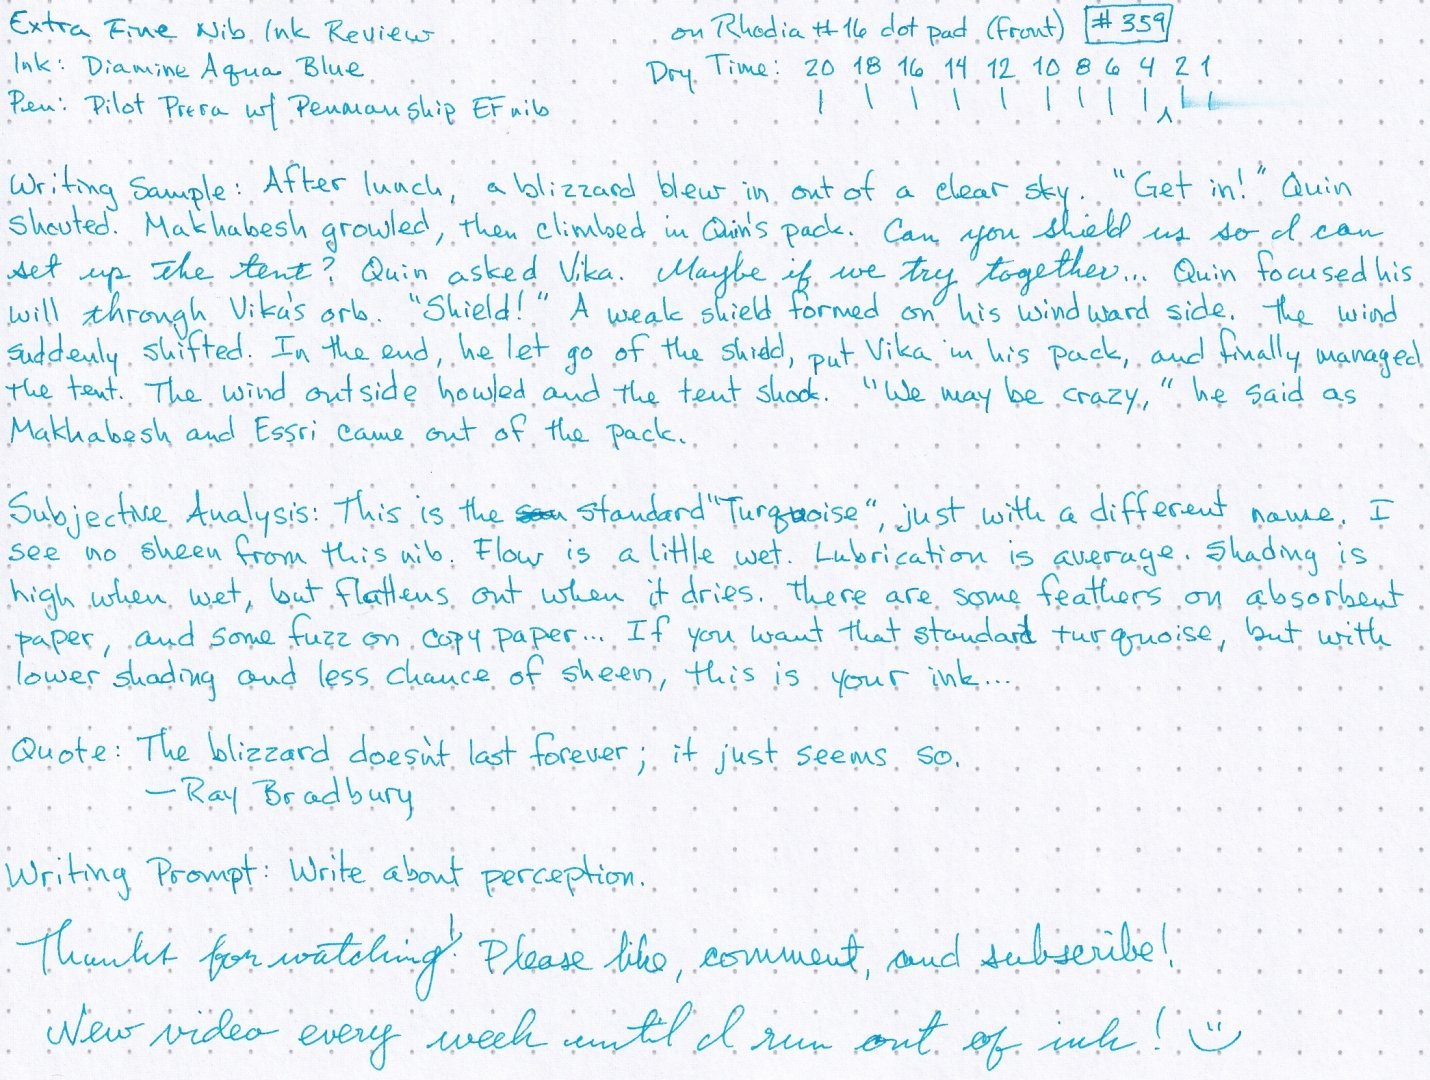 Extra Fine Nib Ink Review
on Rhodia #16 dot pad (front) #359
Ink: Diamine Aqua Blue
Dry Time: 20 18 16 14 12 10 8 6 4 2 1
Pen: Pilot Prera w/ Penmanship EF nib
Writing Sample: After lunch, a blizzard blew in out of a clear sky. "Get in!" Quin
shouted. Makhabesh growled, then climbed in Quin's pack. Can you shield us so I can
set up the tent? Quin asked Vika. Maybe if we try together... Quin focused his
will through Vika's orb. "Shield!" A weak shield formed on his windward side. The wind
suddenly shifted. In the end, he let go of the shield, put Vika in his pack, and finally managed
the tent. The wind outside howled and the tent shook. "We may be crazy," he said as
Makhabesh and Essri came out of the pack.
Subjective Analysis: This is the standard "Turquoise", just with a different name. I
see no sheen from this nib. Flow is a little wet. Lubrication is average. Shading is
high when wet, but flattens out when it dries. There are some feathers on absorbent
paper, and some fuzz on copy paper... If you want that standard turquoise, but with
lower shading and less chance of sheen, this is your ink...
Quote: The blizzard doesn't last forever; it just seems so.
—Ray Bradbury
Writing Prompt: Write about perception.
Thanks for watching! Please like, comment, and subscribe!
New video every week until I run out of ink!